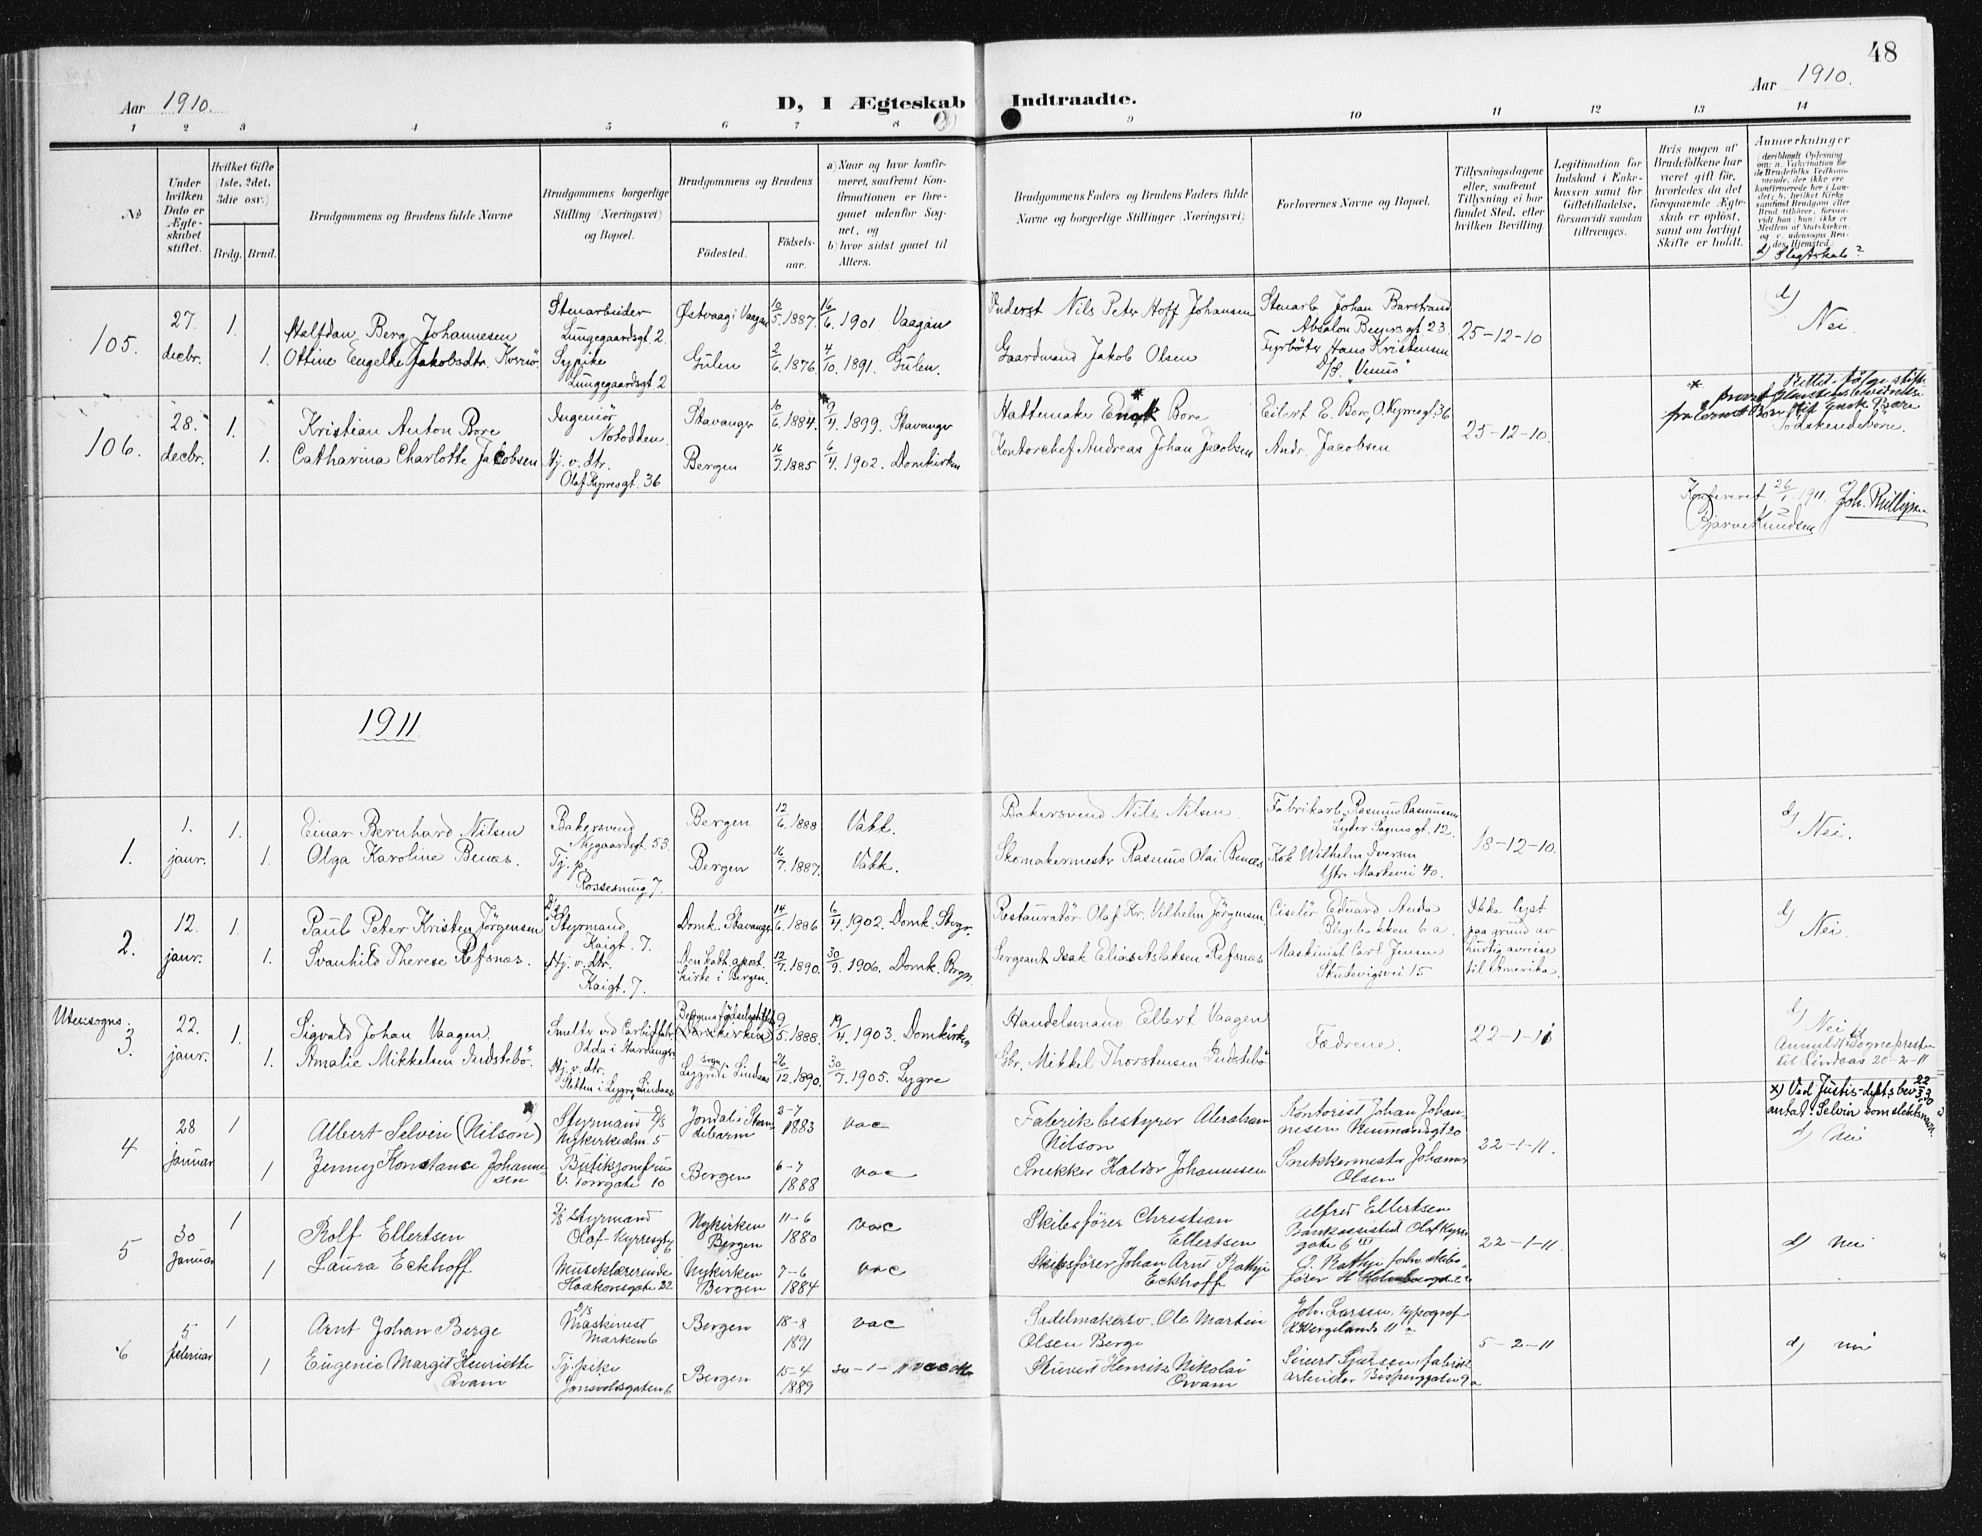 48
Aar 1910.
D, I Ægteskab Indtraadte.
Aar 1910.
1 2 3 4 5 6 7 8 9 10 11 12 13 14
№
Under hvilken Dato er Ægteskabet stiftet.
Hvilket Gifte (1ste, 2det, 3die osv.)
Brdg. Brud.
Brudgommens og Brudens fulde Navne
Brudgommens borgerlige Stilling (Næringsvei) og Bopæl.
Brudgommens og Brudens
Fødested.
Fødselsaar.
a) Naar og hvor konfirmeret, saafremt Konfirmationen er foregaaet udenfor Sognet, og
b) hvor sidst gaaet til Alters.
Brudgommens Faders og Brudens Faders fulde Navne og borgerlige Stillinger (Næringsvei)
Forlovernes Navne og Bopæl.
Tillysningsdagene eller, saafremt Tillysning ei har fundet Sted, efter hvilken Bevilling
Legitimation for Indskud i Enkekassen samt for Giftetilladelse, forsaavidt saadan tiltrænges.
Hvis nogen af Brudefolkene har været gift før, hvorledes da det foregaaende Ægteskab er opløst, samt om lovligt Skifte er holdt.
Anmerkninger
d) Slegtskab?
105.
27. decbr. 1. Halfdan Berg Johannesen
Stenarbeider Lungegaardsgt 2
Østvaag i Vaagan 10/5 1887. 16/6 1901 Vaagan
Inderst Nils Peter Hoff Johansen
Stenarb. Johan Barstrand Absalon Beyersgt 23
25-12-10
d) Nei.
1. Ottine Engelke Jakobsdtr. Kversø
Sypike Lungegaardsgt 2
Gulen 2/6 1876. 4/10 1891. Gulen.
Gaardmand Jakob Olsen
Fyrbøter Hans Kristensen D/S. "Venus"
106.
28. decbr. 1. Kristian Anton Bore
Ingeniør Notodden
Stavanger 10/6 1884. 9/4 1899. Stavanger
Hattemaker Enok Bore
Eilert E. Bore, O. Kyrresgt. 36
25-12-10.
1. Catharina Charlotte Jacobsen
Hj. v. dtr. Olaf Kyrresgt. 36
Bergen 16/7 1885 6/4 1902. Domkirken
Kontorchef Andreas Johan Jacobsen
Andr. Jacobsen
Konfereret 26/1 1911.
Bjarne Knudsen
1911
1.
1. janr. 1. Einar Bernhard Nilsen
Bakersvend Nygaardsgt. 53.
Bergen 12/6 1888 Vakk.
Bakersvend Nils Nilsen.
Fabrikarb. Rasmus Rasmussen Lyder Sagensgt. 12.
18-12-10.
d) Nei.
1. Olga Karoline Benæs.
Tj. p. Rossesmug 7.
Bergen 16/7 1887. Vakk.
Skomakermester Rasmus Olai Benæs
Kok Wilhelm Iversen Ytre Markevei 40.
2.
12. janr. 1. Paul Peter Kristen Jørgensen
Styrmand Kaigt. 7.
Domk. Stavanger 14/6 1886 6/4 1902. Domk. Stvgr.
Restauratør Olaf Kr. Vilhelm Jørgensen
Ciselør Edvard Anda 6 a.
Ikke lyst paa grund av hurtig avreise til Amerika.
d) Nei.
1. Svanhild Therese Refsnæs.
Hj. v. dtr. Kaigt. 7.
Den kath. apost. kirke i Bergen. 12/7 1890. 30/9 1906. Domk. Brgn.
Sergeant Isak Elias Aslaksen Refsnæs
Maskinist Carl Jensen Skudevigsvei 15
Utensogns.
3.
22. janr. 1. Sigvald Johan Vaagen.
Smelter ved Carbidfabr. Odda i Hardanger
Bergens fødselsstiftelse (Domkirken) 9/5 1888. 19/4 1903. Domkirken
Handelsmand Ellert Vaagen
Fædrene.
22-1-11
d) Nei
Anmeldt til Sognepresten til Lindaas 20-2-11
1. Amalie Mikkelsen Indstebø.
Hj. v. dtr. Sletten i Lygre, Lindaas
Lygre sogn i Lindaas 26/12 1890. 30/7 1905. Lygre
Gbr. Mikkel Thorstensen Indstebø
4
28 januar 1 Albert Selvin (Nilson) x)
Styrmand D/S Nykirkealm. 5
Jondal i Strandebarm 2-7 1883 vac
Fabrikbestyrer Abraham Nilson
Kontorist Johan Johannesen Neumandsgt 20
22-1-11.
x) Ved Justis-dept.s bev. antat Selvin som slektsnavn.
d) Nei
1 Jenny Konstance Johannesen
Butikjomfru V. Torvgate 10
Bergen 6-7 1888 vac
Snekker Haldor Johannesen
Snekkermester Johannes Olsen
5
30 Januar 1 Rolf Ellertsen
D/S Styrmand Olaf-Kyrresgt 6
Nykirken Bergen 11-6 1880 vac
Skibsfører Christian Ellertsen
Alfred Ellertsen Bankassistent Olaf Kyrresgate 6 III
22-1-11.
d) Nei
1 Laura Eckhoff
Musiklærerinde Haakonsgate 22
Nykirken Bergen 7-6 1884 vac
Skibsfører Johan Arnt Rathje Eckhoff
O. Rathje forhv. skibsfører
6
5 februar 1 Arnt Johan Berge
D/S Maskinist Marken 6
Bergen 18-8 1891 vac
Sadelmakersv. Ole Martin Olsen Berge
Joh. Larsen, typograf
5-2-11
d) nei
1 Eugenie Margit Henriette Qvam
Tj. pike Jonsvoldsgaten 6
Bergen 15-4 1889
Stuvert Henrik Nikolai Qvam
Sivert Sjursen, fabrikarbeider Bispenggaten 9a